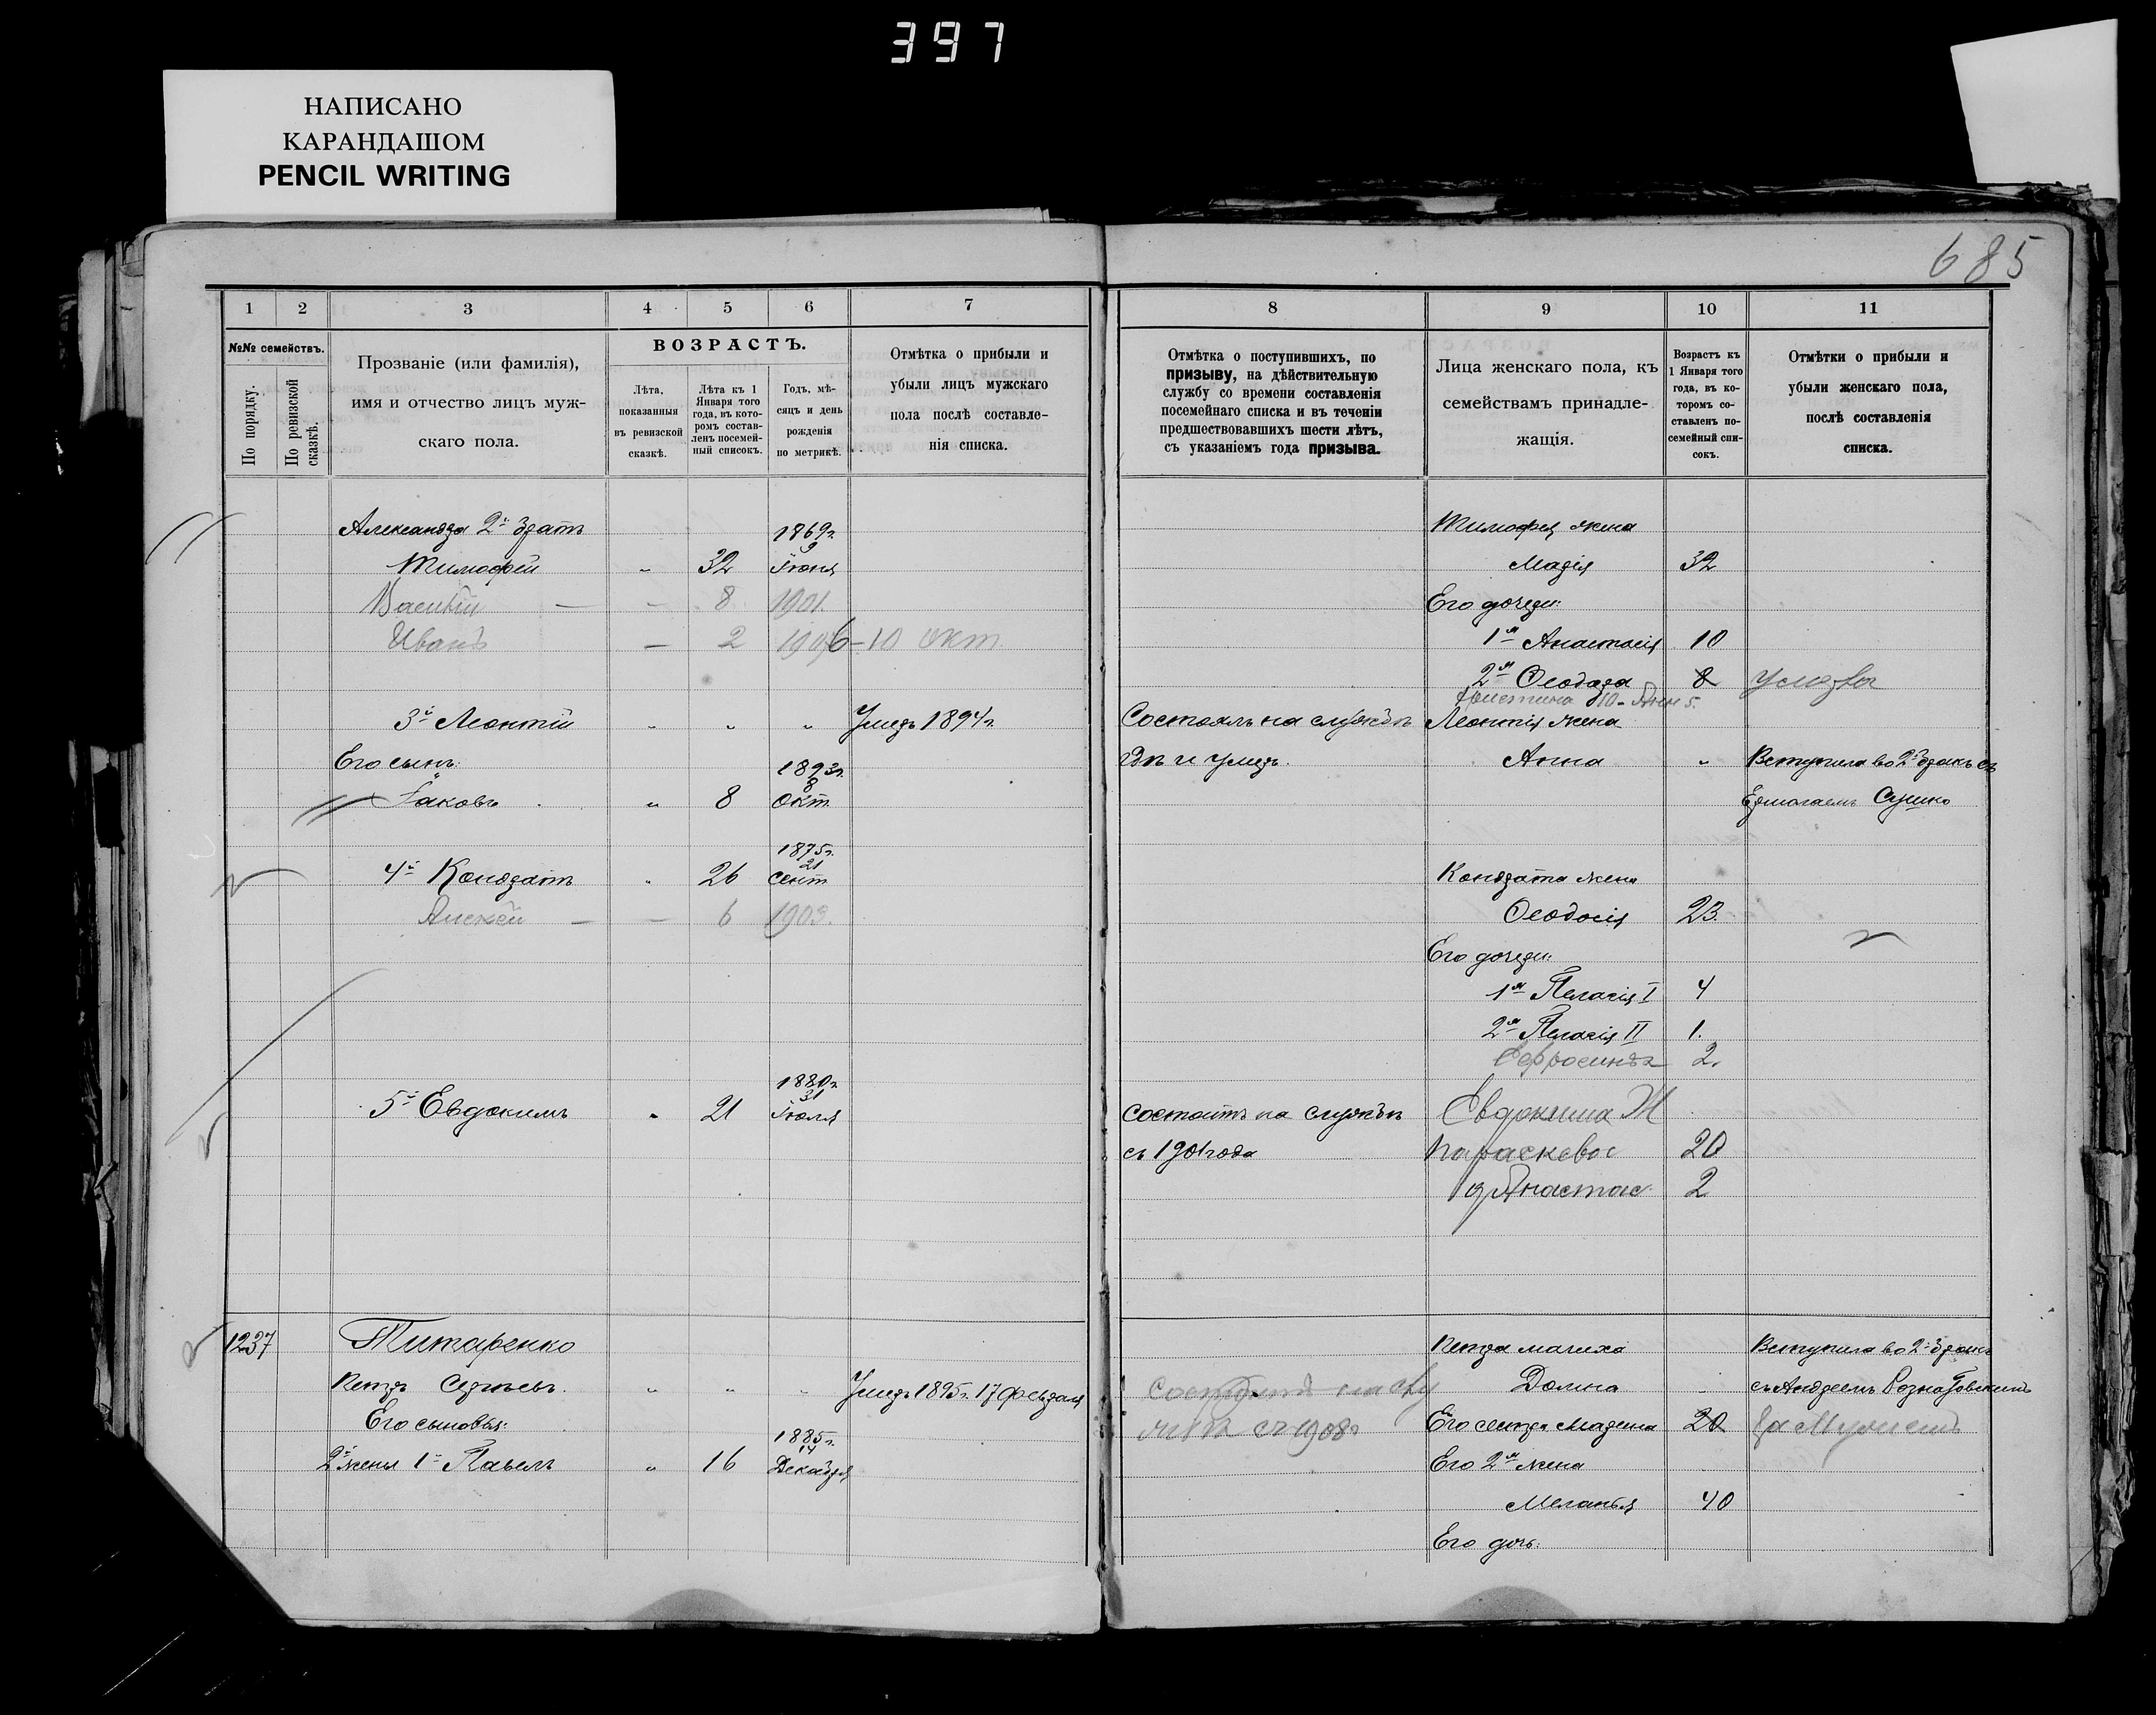 397
НАПИСАНО
КАРАНДАШОМ
PENCIL WRITING
685
1 2 3 4 5 6 7
№№ семействъ.
По порядку.
По ревизской сказкѣ.
Прозваніе (или фамилія),
имя и отчество лицъ муж-
скаго пола.
ВОЗРАСТЪ.
Лѣта,
показанныя
въ ревизской
сказкѣ.
Лѣта къ 1
Января того
года, въ кото-
ромъ состав-
ленъ посемей-
ный списокъ.
Годъ, мѣ-
сяцъ и день
рожденія
по метрикѣ.
Отмѣтка о прибыли и
убыли лицъ мужскаго
пола послѣ составле-
нія списка.
Александра 2й братъ 1869г.
9
Тимофей " 32 Іюня
Василій — - 8 1901
Иванъ — 2 1906-10 окт
3й Леонтій " " " Умеръ 1894г.
Его сынъ: 1892г.
8
Іаковъ " 8 Окт
1875г.
21
4й Кондратъ " 26 Сент
Алексѣй — — 6 1903.
1880г.
31
5й Евдокимъ " 21 Іюля
1237 Титаренко
Петръ Сергѣевъ. " " " Умеръ 1895г. 17 февраля
Его сыновья: 1885г.
14
2й жены 1й Павелъ " 16 Декабря
8 9 10 11
Отмѣтка о поступившихъ, по
призыву, на дѣйствительную
службу со времени составленія
посемейнаго списка и въ теченіи
предшествовавшихъ шести лѣтъ,
съ указаніемъ года призыва.
Лица женскаго пола, къ
семействамъ принадле-
жащія.
Возрастъ къ
1 Января того
года, въ ко-
торомъ со-
ставленъ по-
семейный спи-
сокъ.
Отмѣтки о прибыли и
убыли женскаго пола,
послѣ составленія
списка.
Тимофея жена
Марія 32
Его дочери:
1я Анастасія 10
2я Ѳеодора 8 умерла
Христина 10 - Анн 5.
Состоялъ на службѣ Леонтія жена
гдѣ и умеръ. Анна " Вступила во 2й бракъ съ
Ермолаемъ Сушко
Кондрата жена
Ѳеодосія 23.
Его дочери:
1я Пелагія I 4
2я Пелагія II 1.
Ефросинья 2.
состоитъ на службѣ Евдокима Ж
съ 1901 года Параскева 20
д Анастас. 2
Петра мачиха Вступила во 2й бракъ
Домна съ Андреемъ
съ 1908г Его сестра Марина 20 за Мужемъ
Его 2я жена
Меланья 40
Его дочь: